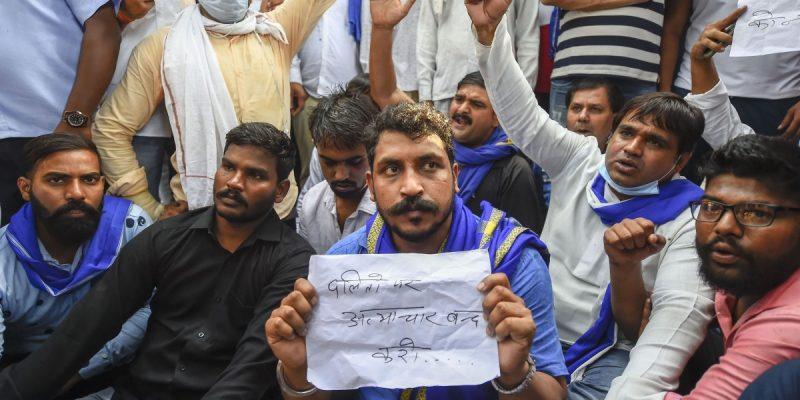 दलितो पर
अत्याचार बन्द
करो.....